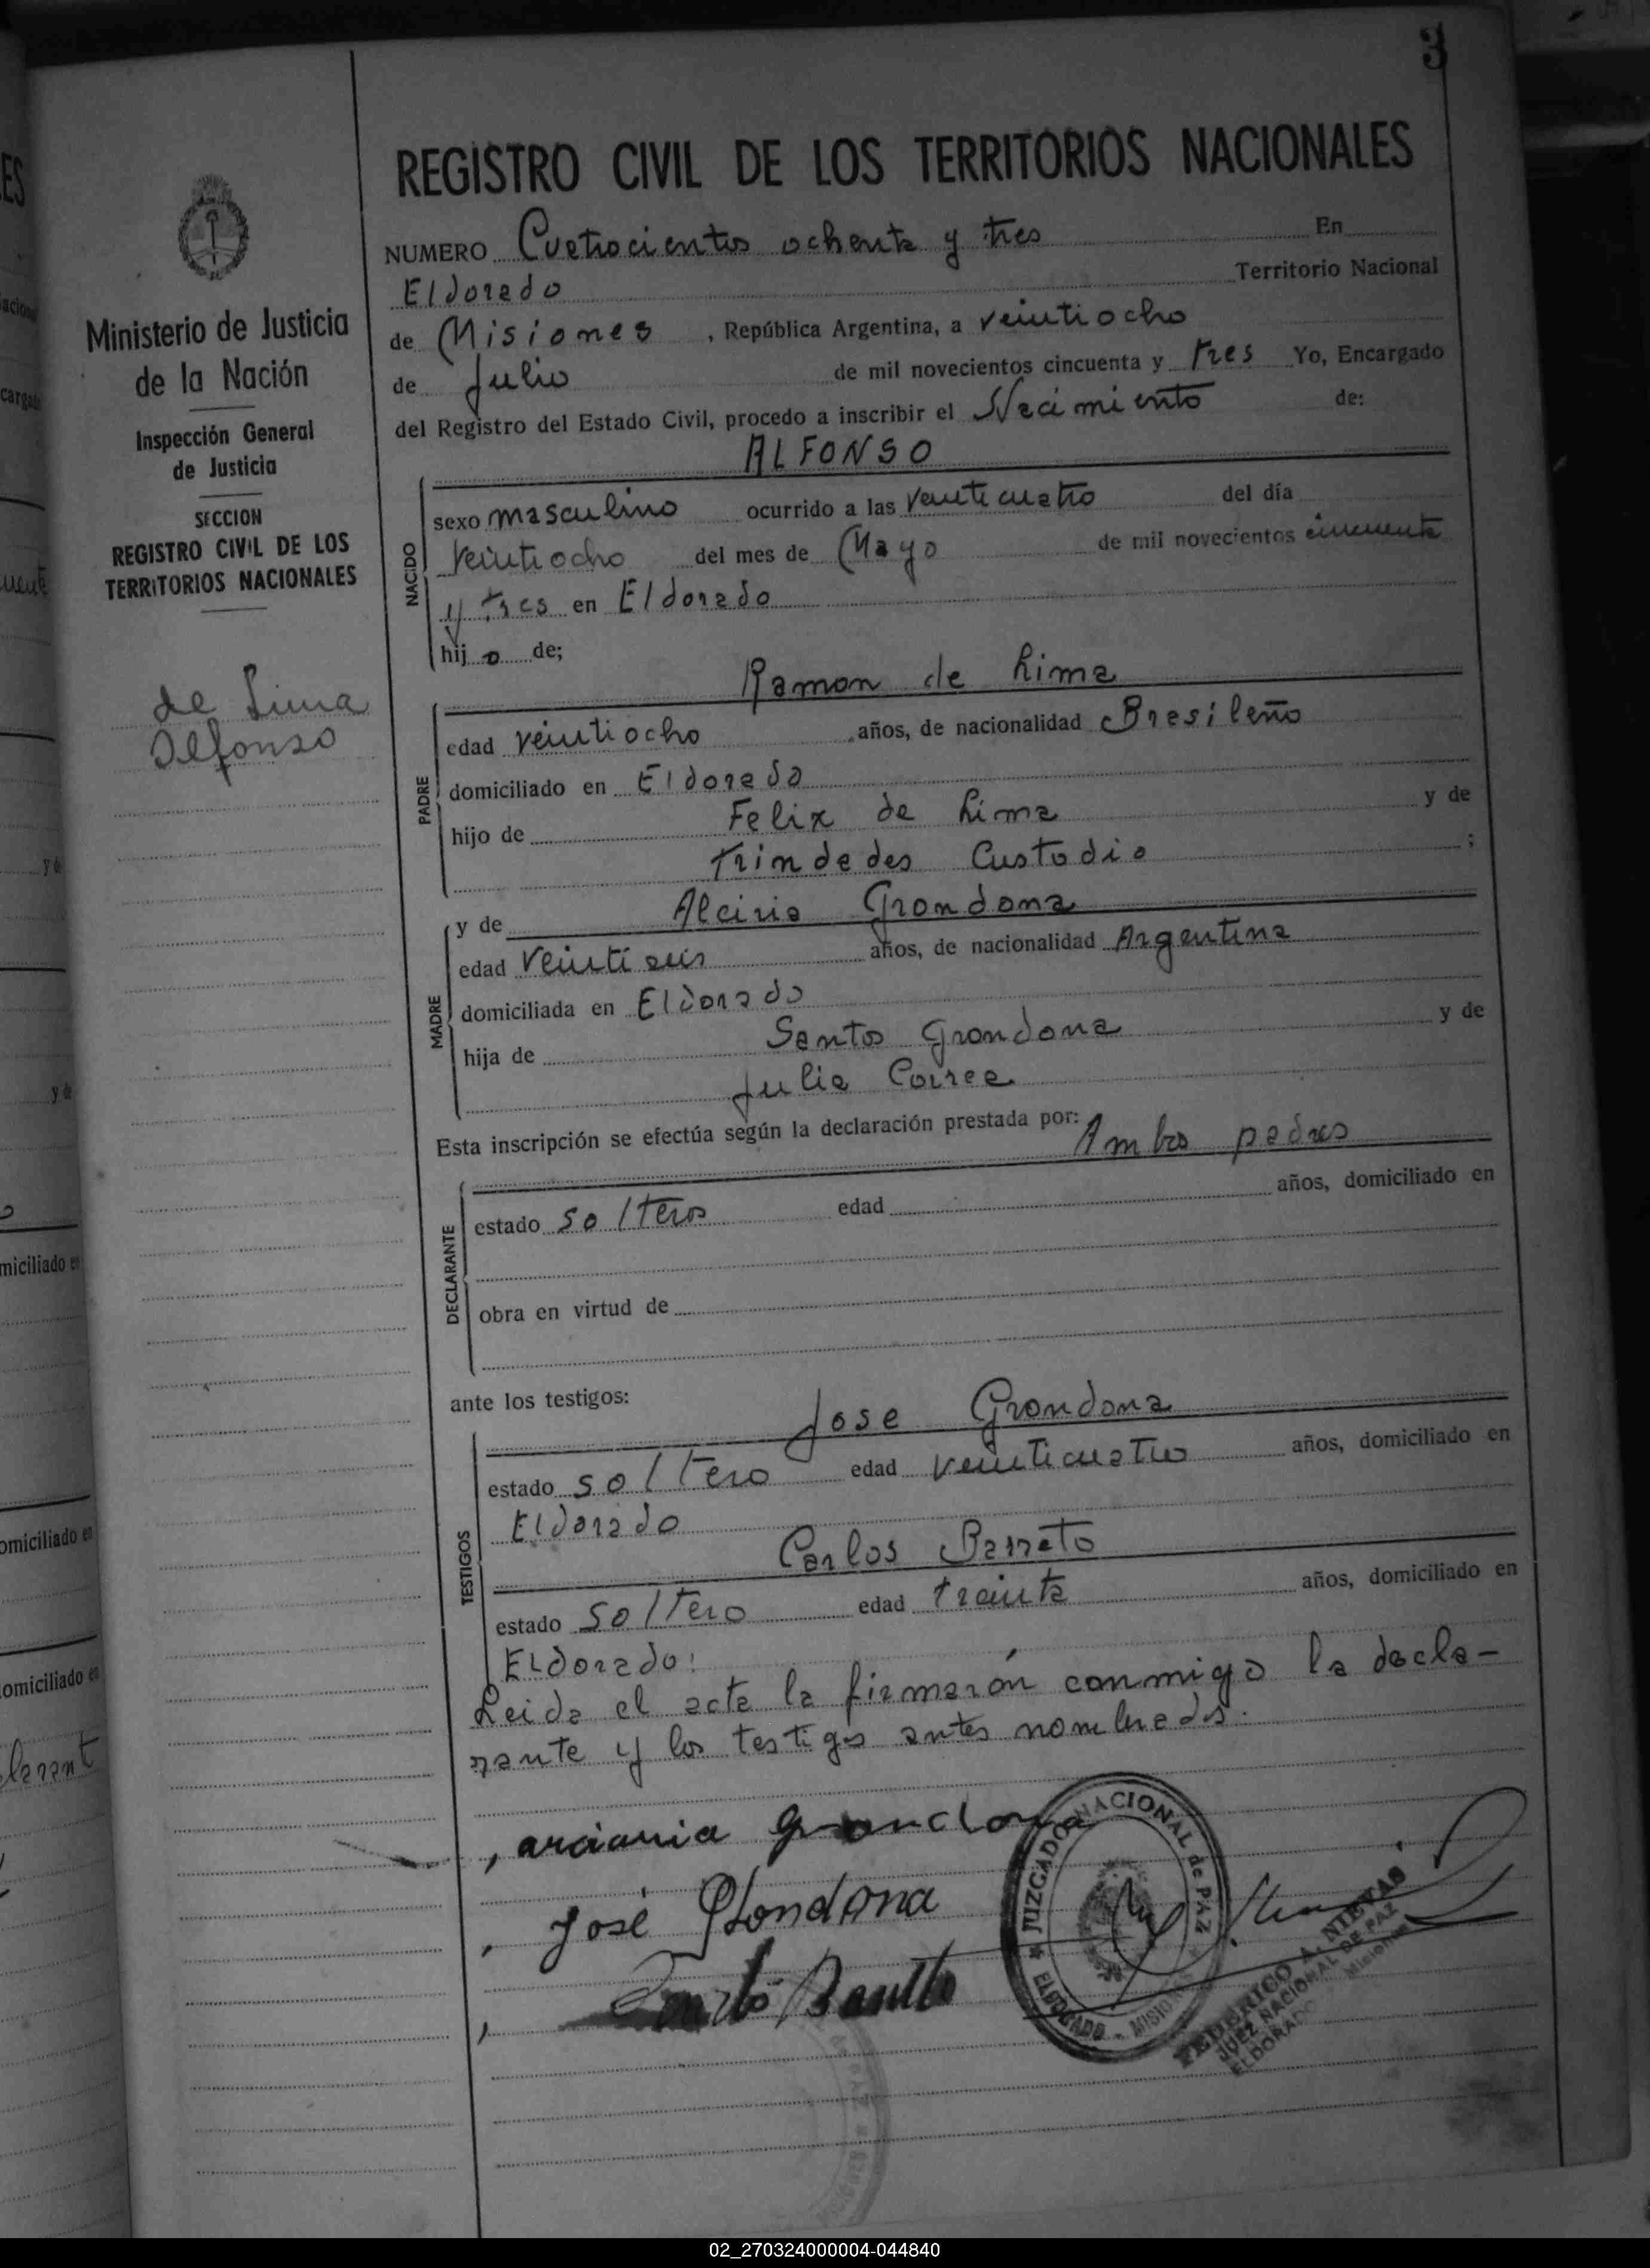 3
REGISTRO CIVIL DE LOS TERRITORIOS NACIONALES
NUMERO Cuatrocientos ochenta y tres En
Eldorado Territorio Nacional
de Misiones , República Argentina, a veintiocho
de Julio de mil novecientos cincuenta y tres Yo, Encargado
del Registro del Estado Civil, procedo a inscribir el Nacimiento de:
ALFONSO
Ministerio de Justicia
de la Nación
Inspección General
de Justicia
SECCION
REGISTRO CIVIL DE LOS
TERRITORIOS NACIONALES
de Lima
Alfonso
NACIDO
sexo masculino ocurrido a las veinticuatro del día
veintiocho del mes de Mayo de mil novecientos cincuenta
y tres en Eldorado
hij o de;
Ramon de Lima
PADRE
edad veintiocho años, de nacionalidad Brasileño
domiciliado en Eldorado
hijo de Felix de Lima y de
Trindades Custodio ;
y de Alciria Grondona
MADRE
edad veintiseis años, de nacionalidad Argentina
domiciliada en Eldorado
hija de Santos Grondona y de
Julia Correa
Esta inscripción se efectúa según la declaración prestada por: Ambos padres
DECLARANTE
estado solteros edad años, domiciliado en
obra en virtud de
ante los testigos:
Jose Grondona
TESTIGOS
estado soltero edad veinticuatro años, domiciliado en
Eldorado
Carlos Barreto
estado soltero edad treinta años, domiciliado en
Eldorado:
Leida el acta la firmarón conmigo la decla-
rante y los testigos antes nombrados.
, arciania grondona
, José Grondona
JUZGADO NACIONAL de PAZ
ELDORADO - MISIONES
FEDERICO A. NIEVAS
JUEZ NACIONAL DE PAZ
ELDORADO Misiones
02_270324000004-044840